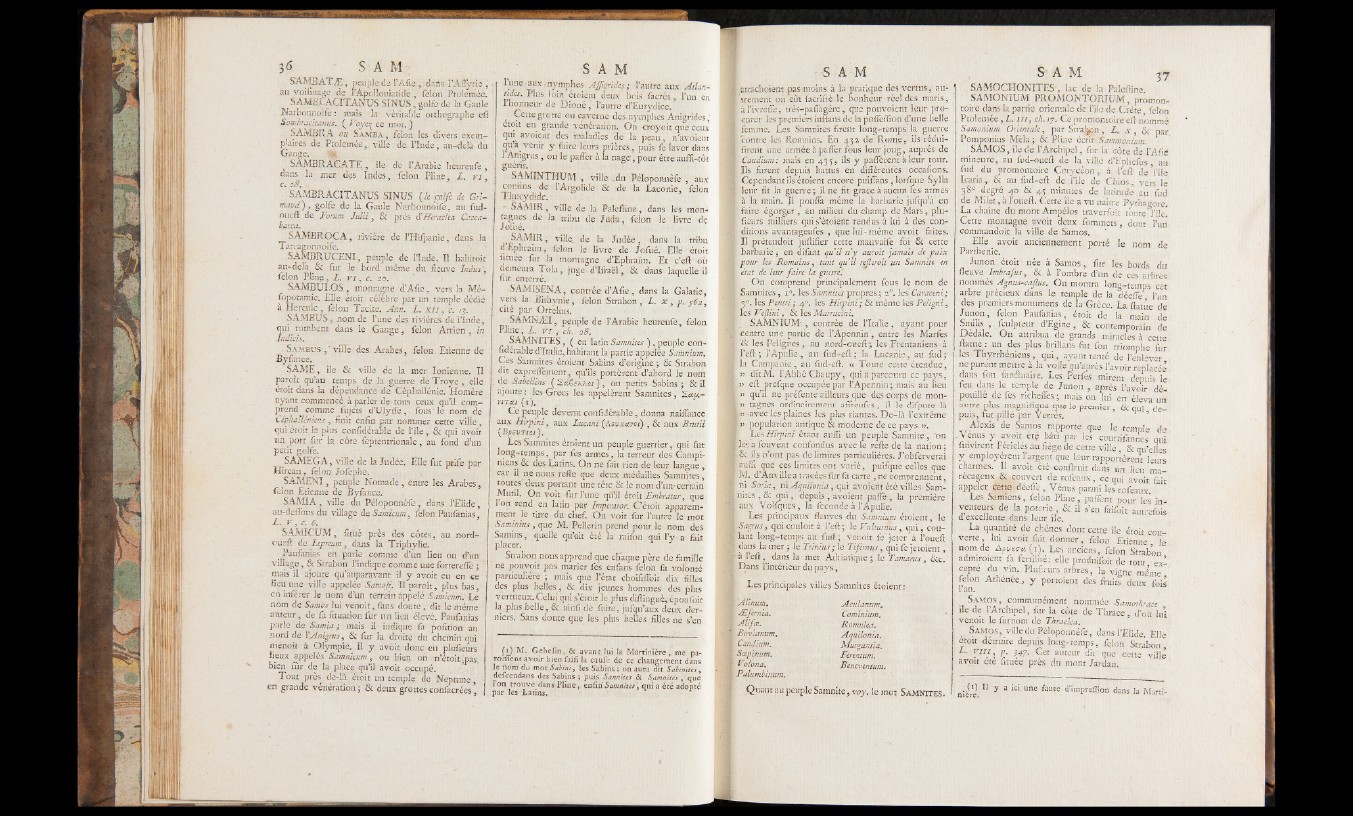 36 S A M
SAMBATÆ, peuple de l'Asie, dans l'Assyrie,
au voisinage de l'Apolloniatide, selon Ptolemée.
SAMBLACITANUS SINUS, golfe de la Gaule
Narbonnoise: mais la véritable orthographe est
Sambracitanus. (Voyez ce mot.)
SAMBRA ou SAMBA, selon les divers exem-
plaires de Ptolemée, ville de l'Inde, au-delà du
Gange.
SAMBRACATE, île de l'Arabie heureuse,
dans la mer des Indes, selon Pline, L. VI,
c. 28.
SAMBRACITANUS SINUS (le golfe de Gri-
maud), golfe de la Gaule Narbonnoise, au sud-
ouest de Forum Julii, & près d'Heraclea Cacca-
baria.
SAMBROCA, rivière de l'Hispanie, dans la
Tarragonnoise.
SAMBRUCENI, peuple de l'Inde. Il habitoit
au-delà & sur le bord même du fleuve Indus,
selon Pline, L. VI, c. 20.
SAMBULOS, montagne d'Asie, vers la Mé-
sopotamie. Elle étoit célèbre par un temple dédié
à Hercule, selon Tacite. Ann. L. XII, c. 13.
SAMBUS, nom de l'une des rivières de l'Inde,
qui tombent dans le Gange, selon Arrien, in
Indicis.
SAMBUS, ville des Arabes, selon Etienne de
Bysance.
SAME, île & ville de la mer Ionienne. Il
paroît qu'au temps de la guerre de Troye, elle
étoit dans la dépendance de Céphallénie. Homère
ayant commencé à parler de tous ceux qu'il com-
prend comme sujets d'Ulysse, sous le nom de
Céphalléniens, finit enfin par nommer cette ville,
qui étoit la plus considérable de l'île, & qui avoit
un port sur la côte septentrionale, au fond d'un
petit golfe.
SAMEGA, ville de la Judée. Elle fut prise par
Hircan, selon Josephe.
SAMENI, peuple Nomade, entre les Arabes,
selon Etienne de Bysance.
SAMIA, ville du Péloponnèse, dans l'Elide,
au-dessous du village de Samicum, selon Pausanias,
L. V, c. 6.
SAMICUM, situé près des côtes, au nord-
ouest de Lepreum, dans la Triphylie.
Pausanias en parle comme d'un lieu ou d'un
village, & Strabon l'indique comme une forteresse;
mais il ajoute qu'auparavant il y avoit eu en ce
lieu une ville appelée Samos. Il paroît, plus bas,
en inférer le nom d'un terrein appelé Samicum. Le
nom de Samos lui venoit, sans doute, dit le même
auteur, de sa situation sur un lieu élevé. Pausanias
parle de Samia; mais il indique sa position au
nord de l'Anigrus, & sur la droite du chemin qui
menoit à Olympie. Il y avoit donc en plusieurs
lieux appelés Samicum, ou bien on n'étoit pas
bien sûr de la place qu'il avoit occupé.
Tout près de-là étoit un temple de Neptune,
en grande vénération; & deux grottes consacrées,
S A M
l'une aux nymphes Anigrides; l'autre aux Atlan-
tides. Plus loin étoient deux bois sacrés, l'un en
l'honneur de Dioné, l'autre d'Eurydice.
Cette grotte ou caverne des nymphes Anigrides,
étoit en grande vénération. On croyoit que ceux
qui avoient des maladies de la peau, n'avoient
qu'à venir y faire leurs prières, puis se laver dans
l'Anigrus, ou le passer à la nage, pour être aussi-tôt
guéris.
SAMINTHUM, ville du Péloponnèse, aux
confins de l'Argolide & de la Laconie, selon
Thucydide.
SAMIR, ville de la Palestine, dans les mon-
tagnes de la tribu de Juda, selon le livre de
Josué.
SAMIR, ville de la Judée, dans la tribu
d'Ephraïm, selon le livre de Josué. Elle étoit
située sur la montagne d'Ephraïm. Et c'est où
demeura Tola, juge d'Israël, & dans laquelle il
fut enterré.
SAMISENA, contrée d'Asie, dans la Galatie,
vers la Bithynie, selon Strabon, L. x, p. 562,
cité par Ortelius.
SAMNÆI, peuple de l'Arabie heureuse, selon
Pline, L. VI, ch. 28.
SAMNITES, (en latin Samnites), peuple con-
sidérable d'Italie, habitant la partie appelée Samnium.
Ces Samnites étoient Sabins d'origine; & Strabon
dit expressément, qu'ils portèrent d'abord le nom
de Sabellins (Σαβελλοι), ou petits Sabins; & il
ajoute: les Grecs les appelèrent Samnites, Σαυνι-
ται (1).
Ce peuple devenu considérable, donna naissance
aux Hirpini, aux Lucani (Λευκανοι), & aux Brutii
(Βρεττιοι).
Les Samnites étoient un peuple guerrier, qui fut
long-temps, par ses armes, la terreur des Campi-
niens & des Latins. On ne sait rien de leur langue,
car il ne nous reste que deux médailles Samnites,
toutes deux portant une tête & le nom d'un certain
Mutil. On voit sur l'une qu'il étoit Embratur, que
l'on rend en latin par Imperator. C'étoit apparem-
ment le titre du chef. On voit sur l'autre le mot
Saminins, que M. Pellerin prend pour le nom des
Samins, quelle qu'ait été la raison qui l'y a fait
placer.
Strabon nous apprend que chaque père de famille
ne pouvoit pas marier ses enfans selon sa volonté
particulière; mais que l'état choisissoit dix filles
des plus belles, & dix jeunes hommes des plus
vertueux. Celui qui s'étoit le plus distingué, épousoit
la plus belle, & ainsi de suite, jusqu'aux deux der-
niers. Sans doute que les plus belles filles ne s'en
(1) M. Gebelin, & avant lui la Martinière, me pa-
roissent avoir bien saisi la cause de ce changement dans
le nom du mot Sabins, les Sabins; on aura dit Sabinites,
descendans des Sabins; puis Samnites & Samnites, que
l'on trouve dans Pline, enfin Samnites, qui a été adopté
par les Latins.
S A M
attachoient pas moins à la pratique des vertus, au-
trement on eût sacrifié le bonheur réel des maris,
à l'ivresse, très-passagère, que pouvoient leur pro-
curer les premiers instans de la possession d'une belle
femme. Les Samnites firent long-temps la guerre
contre les Romains. En 432 de Rome, ils rédui-
sirent une armée à passer sous leur joug, auprès de
Caudium: mais en 435, ils y passèrent à leur tour.
Ils furent depuis battus en différentes occasions.
Cependant ils étoient encore puissans, lorsque Sylla
leur fit la guerre; il ne fit grace à aucun les armes
à la main. Il poussa même la barbarie jusqu'à en
faire égorger, au milieu du champ de Mars, plu-
sieurs milliers qui s'étoient rendus à lui à des con-
ditions avantageuses, que lui-même avoit faites.
Il prétendoit justifier cette mauvaise foi & cette
barbarie, en disant qu'il n'y auroit jamais de paix
pour les Romains, tant qu'il resteroit un Samnite en
état de leur faire la guerre.
On comprend principalement sous le nom de
Samnites, 1°. les Samnites propres; 2°. les Caraceni;
3°. les Pentri; 4°. les Hirpini; & même les Peligni,
les Vestini, & les Marrucini.
SAMNIUM, contrée de l'Italie, ayant pour
centre une partie de l'Apennin, entre les Marses
& les Pelignes, au nord-ouest; les Frentaniens à
l'est; l'Apulie, au sud-est; la Lucanie, au sud;
la Campanie, au sud-est. « Toute cette étendue,
» dit M. l'Abbé Chaupy, qui a parcouru ce pays,
» est presque occupée par l'Apennin; mais au lieu
» qu'il ne présente ailleurs que des corps de mon-
» tagnes ordinairement affreuses, il le dispute là
» avec les plaines les plus riantes. De-là l'extrême
» population antique & moderne de ce pays ».
Les Hirpini étant aussi un peuple Samnite, on
les a souvent confondus avec le reste de la nation;
& ils n'ont pas de limites particulières. J'observerai
aussi que ces limites ont varié, puisque celles que
M. d'Anville a tracées sur sa carte, ne comprennent,
ni Sorie, ni Aquilonia, qui avoient été villes Sam-
nites, & qui, depuis, avoient passé, la première
aux Volsques, la seconde à l'Apulie.
Les principaux fleuves du Samnium étoient, le
Sagrus, qui couloit à l'est; le Vulturnus, qui, cou-
lant long-temps au sud, venoit se jeter à l'ouest
dans la mer; le Trinius; le Tifernus, qui se jetoient,
à l'est, dans la mer Adriatique; le Tamarus, &c.
Dans l'intérieur du pays,
Les principales villes Samnites étoient:
Alinum.
Æsernia.
Allifæ.
Bovianum.
Caudium.
Sæpinum.
Volana.
Palumbinum.
Aculanum.
Cominium.
Romulea.
Aquilonia.
Murgantia.
Ferentum.
Beneventum.
Quant au peuple Samnite, voy. le mot SAMNITES.
S A M 37
SAMOCHONITES, lac de la Palestine.
SAMONIUM PROMONTORIUM, promon-
toire dans la partie orientale de l'île de Crète, selon
Ptolemée, L. III, ch. 17. Ce promontoire est nommé
Samonium Orientale, par Strabon, L. x, & par
Pomponius Mela; & Pline écrit Sammonium.
SAMOS, île de l'Archipel, sur la côte de l'Asie
mineure, au sud-ouest de la ville d'Ephesus, au
sud du promontoire Corycéon, à l'est de l'île
Icaria, & au sud-est de l'île de Chios, vers le
38e degré 40 & 45 minutes de latitude au sud
de Milet, à l'ouest. Cette île a vu naître Pythagore.
La chaîne du mont Ampélos traversoit toute l'île.
Cette montagne avoit deux sommets, dont l'un
commandoit la ville de Samos.
Elle avoit anciennement porté le nom de
Parthenie.
Junon étoit née à Samos, sur les bords du
fleuve Imbrasus, & à l'ombre d'un de ces arbres
nommés Agnus-castus. On montra long-temps cet
arbre précieux dans le temple de la déesse, l'un
des premiers monumens de la Grèce. La statue de
Junon, selon Pausanias, étoit de la main de
Smilis, sculpteur d'Egine, & contemporain de
Dédale. On attribua de grands miracles à cette
statue: un des plus brillans fut son triomphe sur
les Thyrrhéniens, qui, ayant tenté de l'enlever,
ne purent mettre à la voile qu'après l'avoir replacée
dans son sanctuaire. Les Perses mirent depuis le
feu dans le temple de Junon, après l'avoir dé-
pouillé de ses richesses; mais on lui en éleva un
autre plus magnifique que le premier, & qui, de-
puis, fut pillé par Verrès.
Alexis de Samos rapporte que le temple de
Vénus y avoit été bâti par les courtisannes qui
suivirent Périclès au siège de cette ville, & qu'elles
y employèrent l'argent que leur rapportèrent leurs
charmes. Il avoit été construit dans un lieu ma-
récageux & couvert de roseaux, ce qui avoit fait
appeler cette déesse, Vénus parmi les roseaux.
Les Samiens, selon Pline, passent pour les in-
venteurs de la poterie, & il s'en faisoit autrefois
d'excellente dans leur île.
La quantité de chênes dont cette île étoit cou-
verte, lui avoit fait donner, selon Etienne, le
nom de Δρυουσα (1). Les anciens, selon Strabon,
admiroient sa fertilité: elle produisoit de tout, ex-
cepté du vin. Plusieurs arbres, la vigne même,
selon Athénée, y portoient des fruits deux fois
l'an.
SAMOS, communément nommée Samothrace,
île de l'Archipel, sur la côte de Thrace, d'où lui
venoit le surnom de Thracica.
SAMOS, ville du Péloponnèse, dans l'Elide. Elle
étoit détruite depuis long-temps, selon Strabon,
L. VIII, p. 347. Cet auteur dit que cette ville
avoit été située près du mont Jardan.
(1) Il y a ici une faute d'impression dans la Marti-
nière.